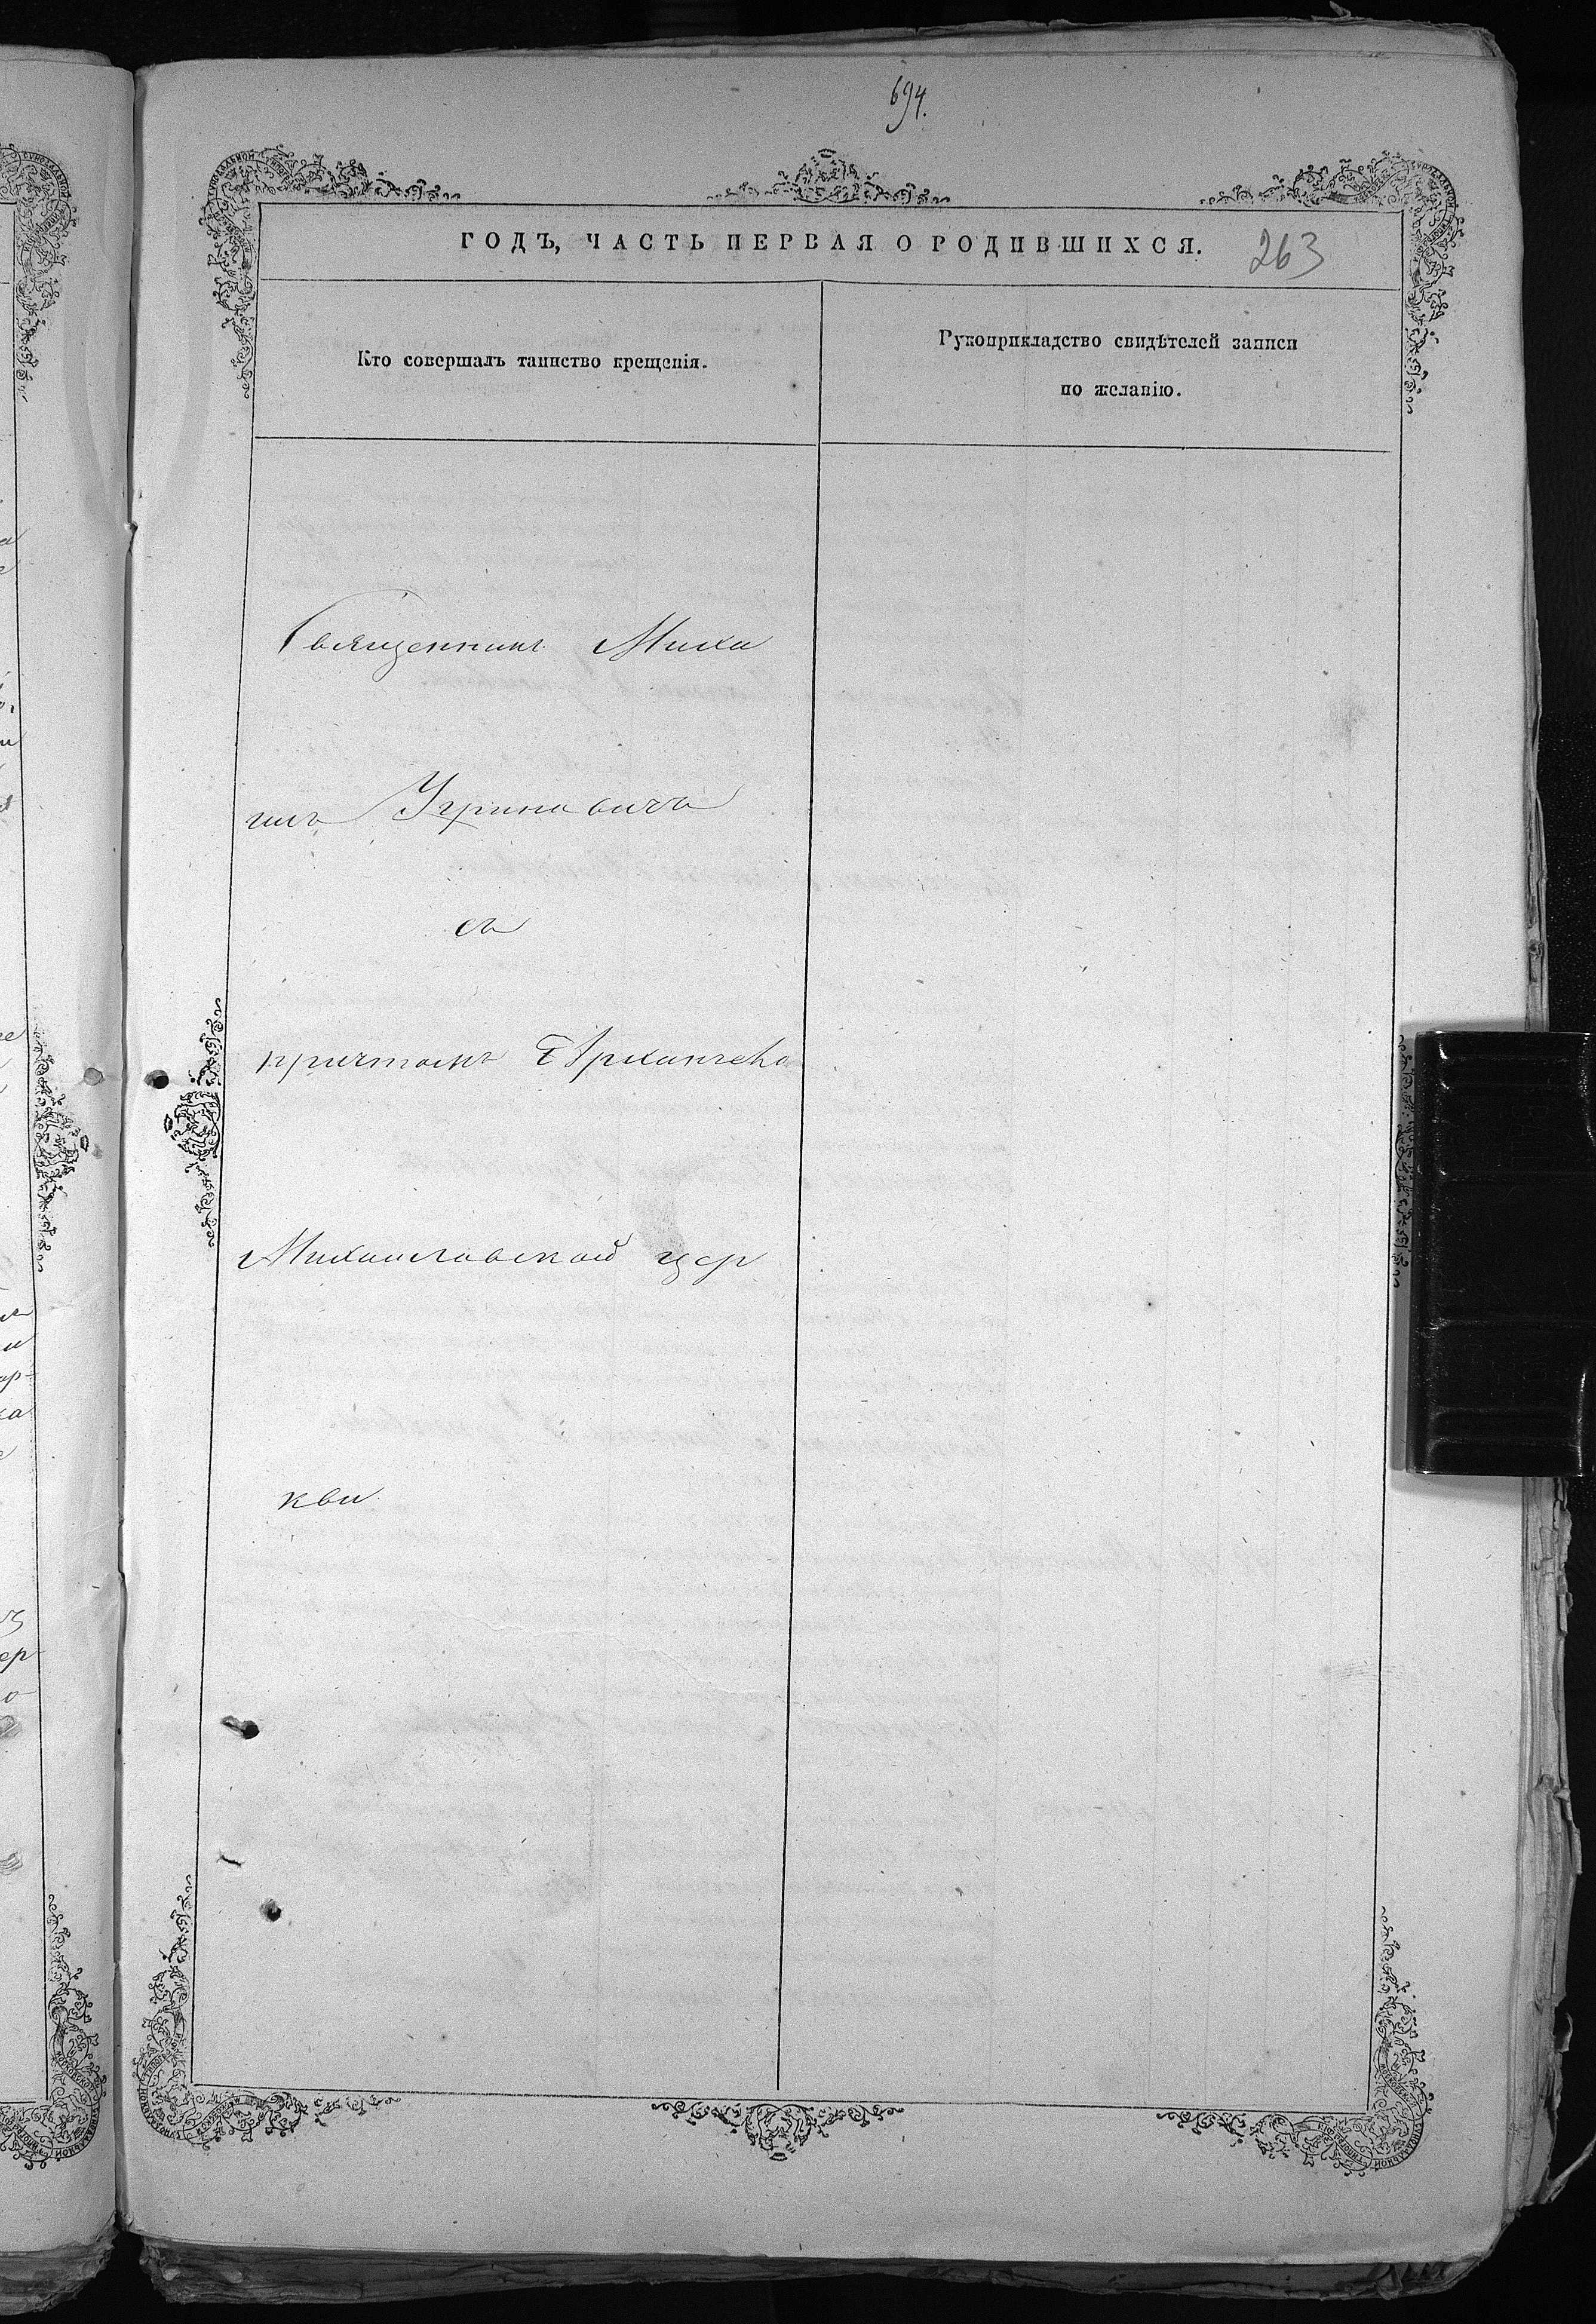 694.
ГОДЪ, ЧАСТЬ ПЕРВАЯ О РОДИВШИХСЯ.
263
Кто совершалъ таинство крещенія.
Рукоприкладство свидѣтелей записи
по желанію.
Священникъ Миха
илъ Угриновичъ
съ
причтомъ Архангело
Михаиловской цер
кви.